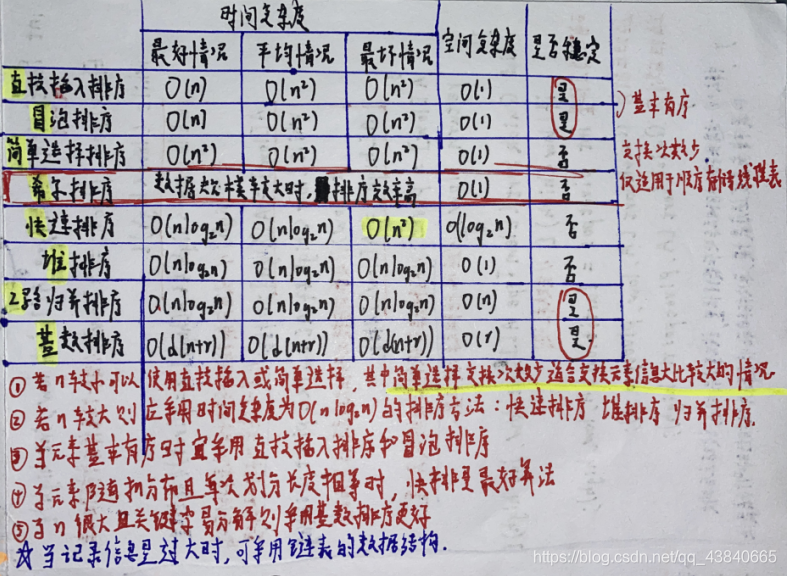 时间复杂度
最好情况 平均情况 最坏情况 空间复杂度 是否稳定
直接插入排序 O(n) O(n²) O(n²) O(1) 是
冒泡排序 O(n) O(n²) O(n²) O(1) 是
}基本有序
简单选择排序 O(n²) O(n²) O(n²) O(1) 否
交换次数少
希尔排序 数据规模较大时,排序效率高 O(1) 否
仅适用于顺序存储线性表
快速排序 O(nlog₂n) O(nlog₂n) O(n²) O(log₂n) 否
堆排序 O(nlog₂n) O(nlog₂n) O(nlog₂n) O(1) 否
2路归并排序 O(nlog₂n) O(nlog₂n) O(nlog₂n) O(n) 是
基数排序 O(d(n+r)) O(d(n+r)) O(d(n+r)) O(r) 是
① 若n较小可以使用直接插入或简单选择,其中简单选择交换次数少适合交换元素信息大比较大的情况
② 若n较大则应采用时间复杂度为O(nlog₂n)的排序方法:快速排序 堆排序 归并排序.
③ 当元素基本有序时宜采用直接插入排序和冒泡排序
④ 当元素随机分布且每次划分长度相等时,快排是最好算法
⑤ 当n很大且关键字易分解则采用基数排序更好
☆ 当记录信息量过大时,可采用链表的数据结构.
https://blog.csdn.net/qq_43840665